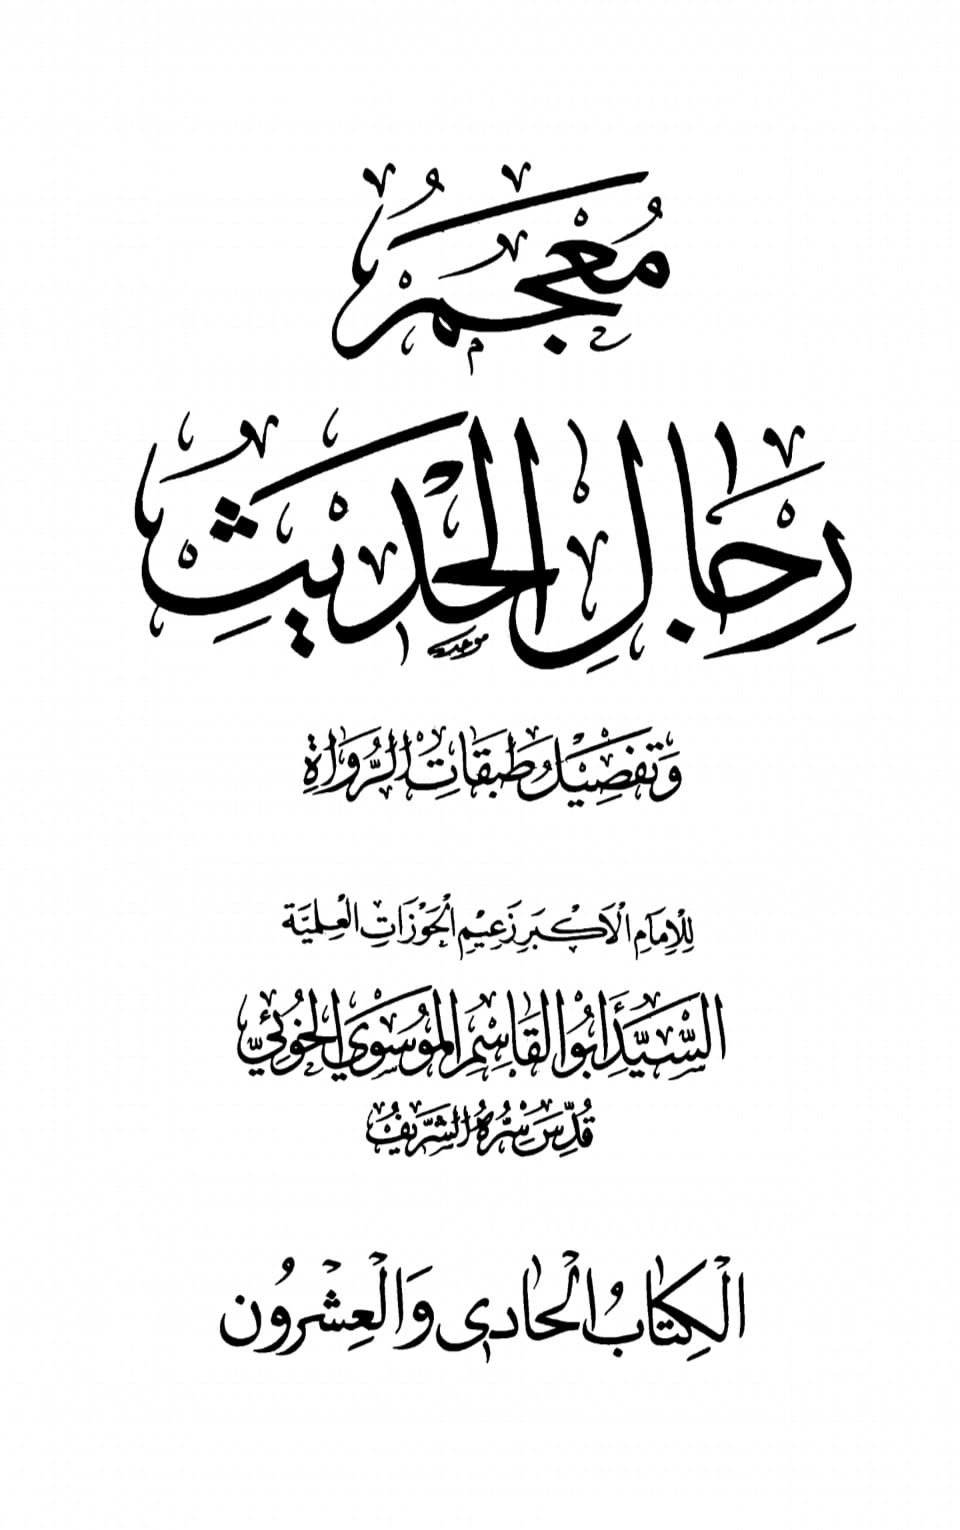 مُعْجَمُ
رِجَالِ الْحَدِيثِ
وَتَفْصِيلُ طَبَقَاتِ الرُّوَاةِ
لِلْإِمَامِ الْأَكْبَرِ زَعِيمِ الْحَوْزَاتِ الْعِلْمِيَّة
السَّيِّدُ أَبُو الْقَاسِمِ الْمُوسَوِيُّ الْخُوئِيُّ
قُدِّسَ سِرُّهُ الشَّرِيفُ
الْكِتَابُ الْحَادِي وَالْعِشْرُون